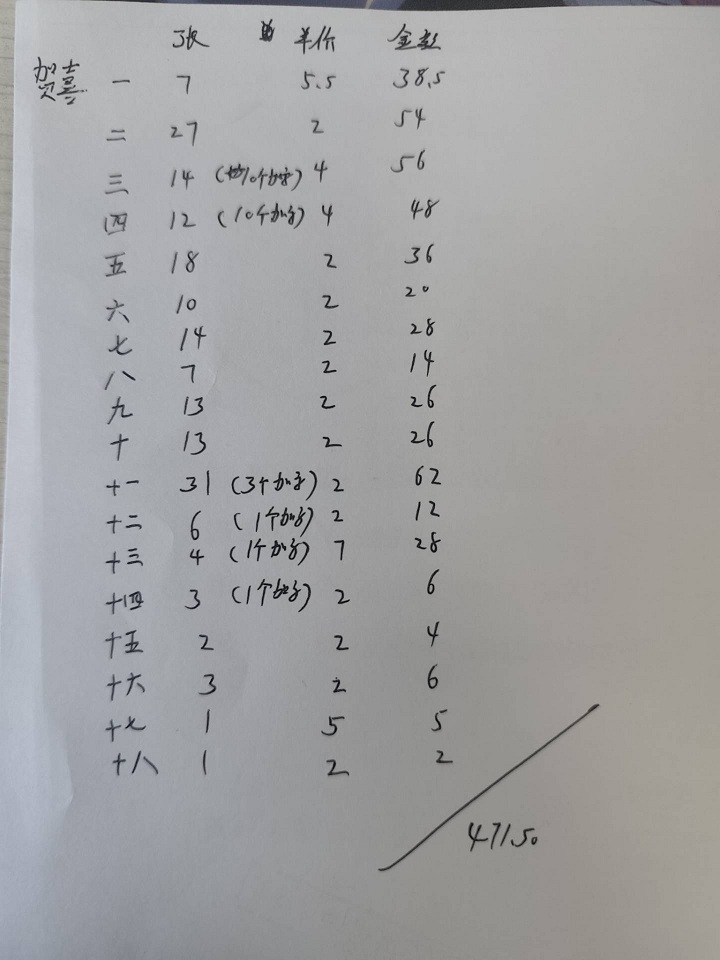 张 单价 金额
贺喜 一 7 5.5 38.5
二 27 2 54
三 14 (10个加字) 4 56
四 12 (10个加字) 4 48
五 18 2 36
六 10 2 20
七 14 2 28
八 7 2 14
九 13 2 26
十 13 2 26
十一 31 (3个加字) 2 62
十二 6 (1个加字) 2 12
十三 4 (1个加字) 7 28
十四 3 (1个加字) 2 6
十五 2 2 4
十六 3 2 6
十七 1 5 5
十八 1 2 2
471.50